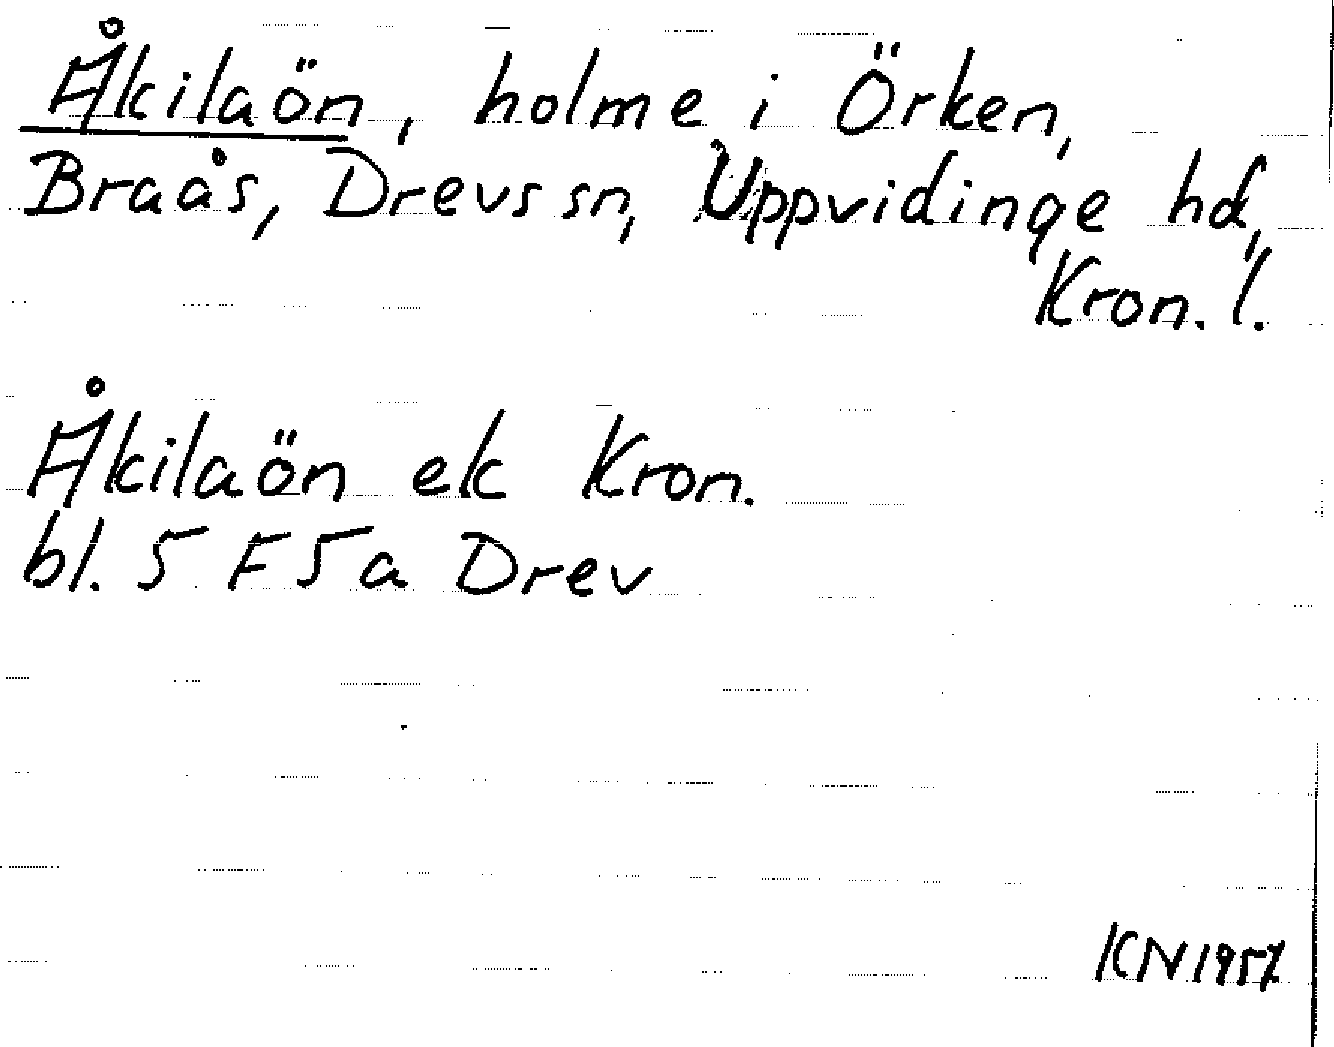 Åkilaön, holme i Örken,
Braås, Drevs sn, Uppvidinge hd,
Kron. l.
Åkilaön ek Kron.
bl. 5 F 5 a Drev
KN 1957